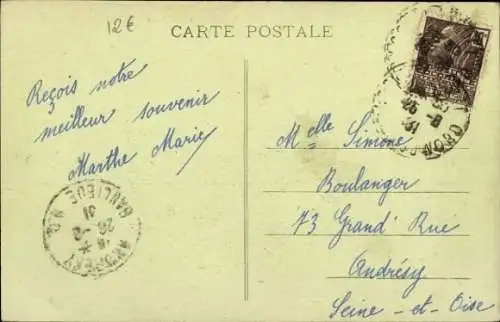 12€
CARTE POSTALE
Reçois notre
meilleur souvenir
Marthe Marie
Melle Simone
Boulanger
73 Grand' Rue
Andrésy
Seine-et-Oise
BANLIEUE N.O.
31
26-8